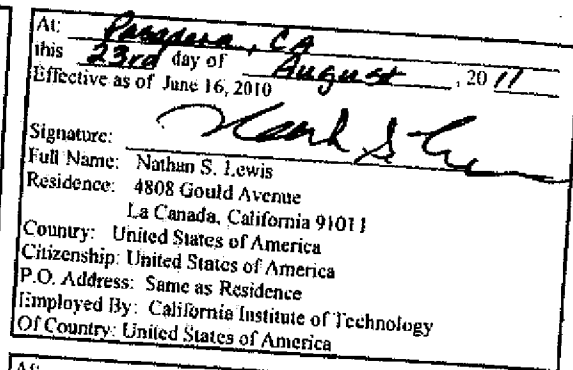 At: Pasadena, CA
this 23rd day of August, 2011
Effective as of June 16, 2010
Signature:
Full Name: Nathan S. Lewis
Residence: 4808 Gould Avenue
La Canada, California 91011
Country: United States of America
Citizenship: United States of America
P.O. Address: Same as Residence
Employed By: California Institute of Technology
Of Country: United States of America
At: